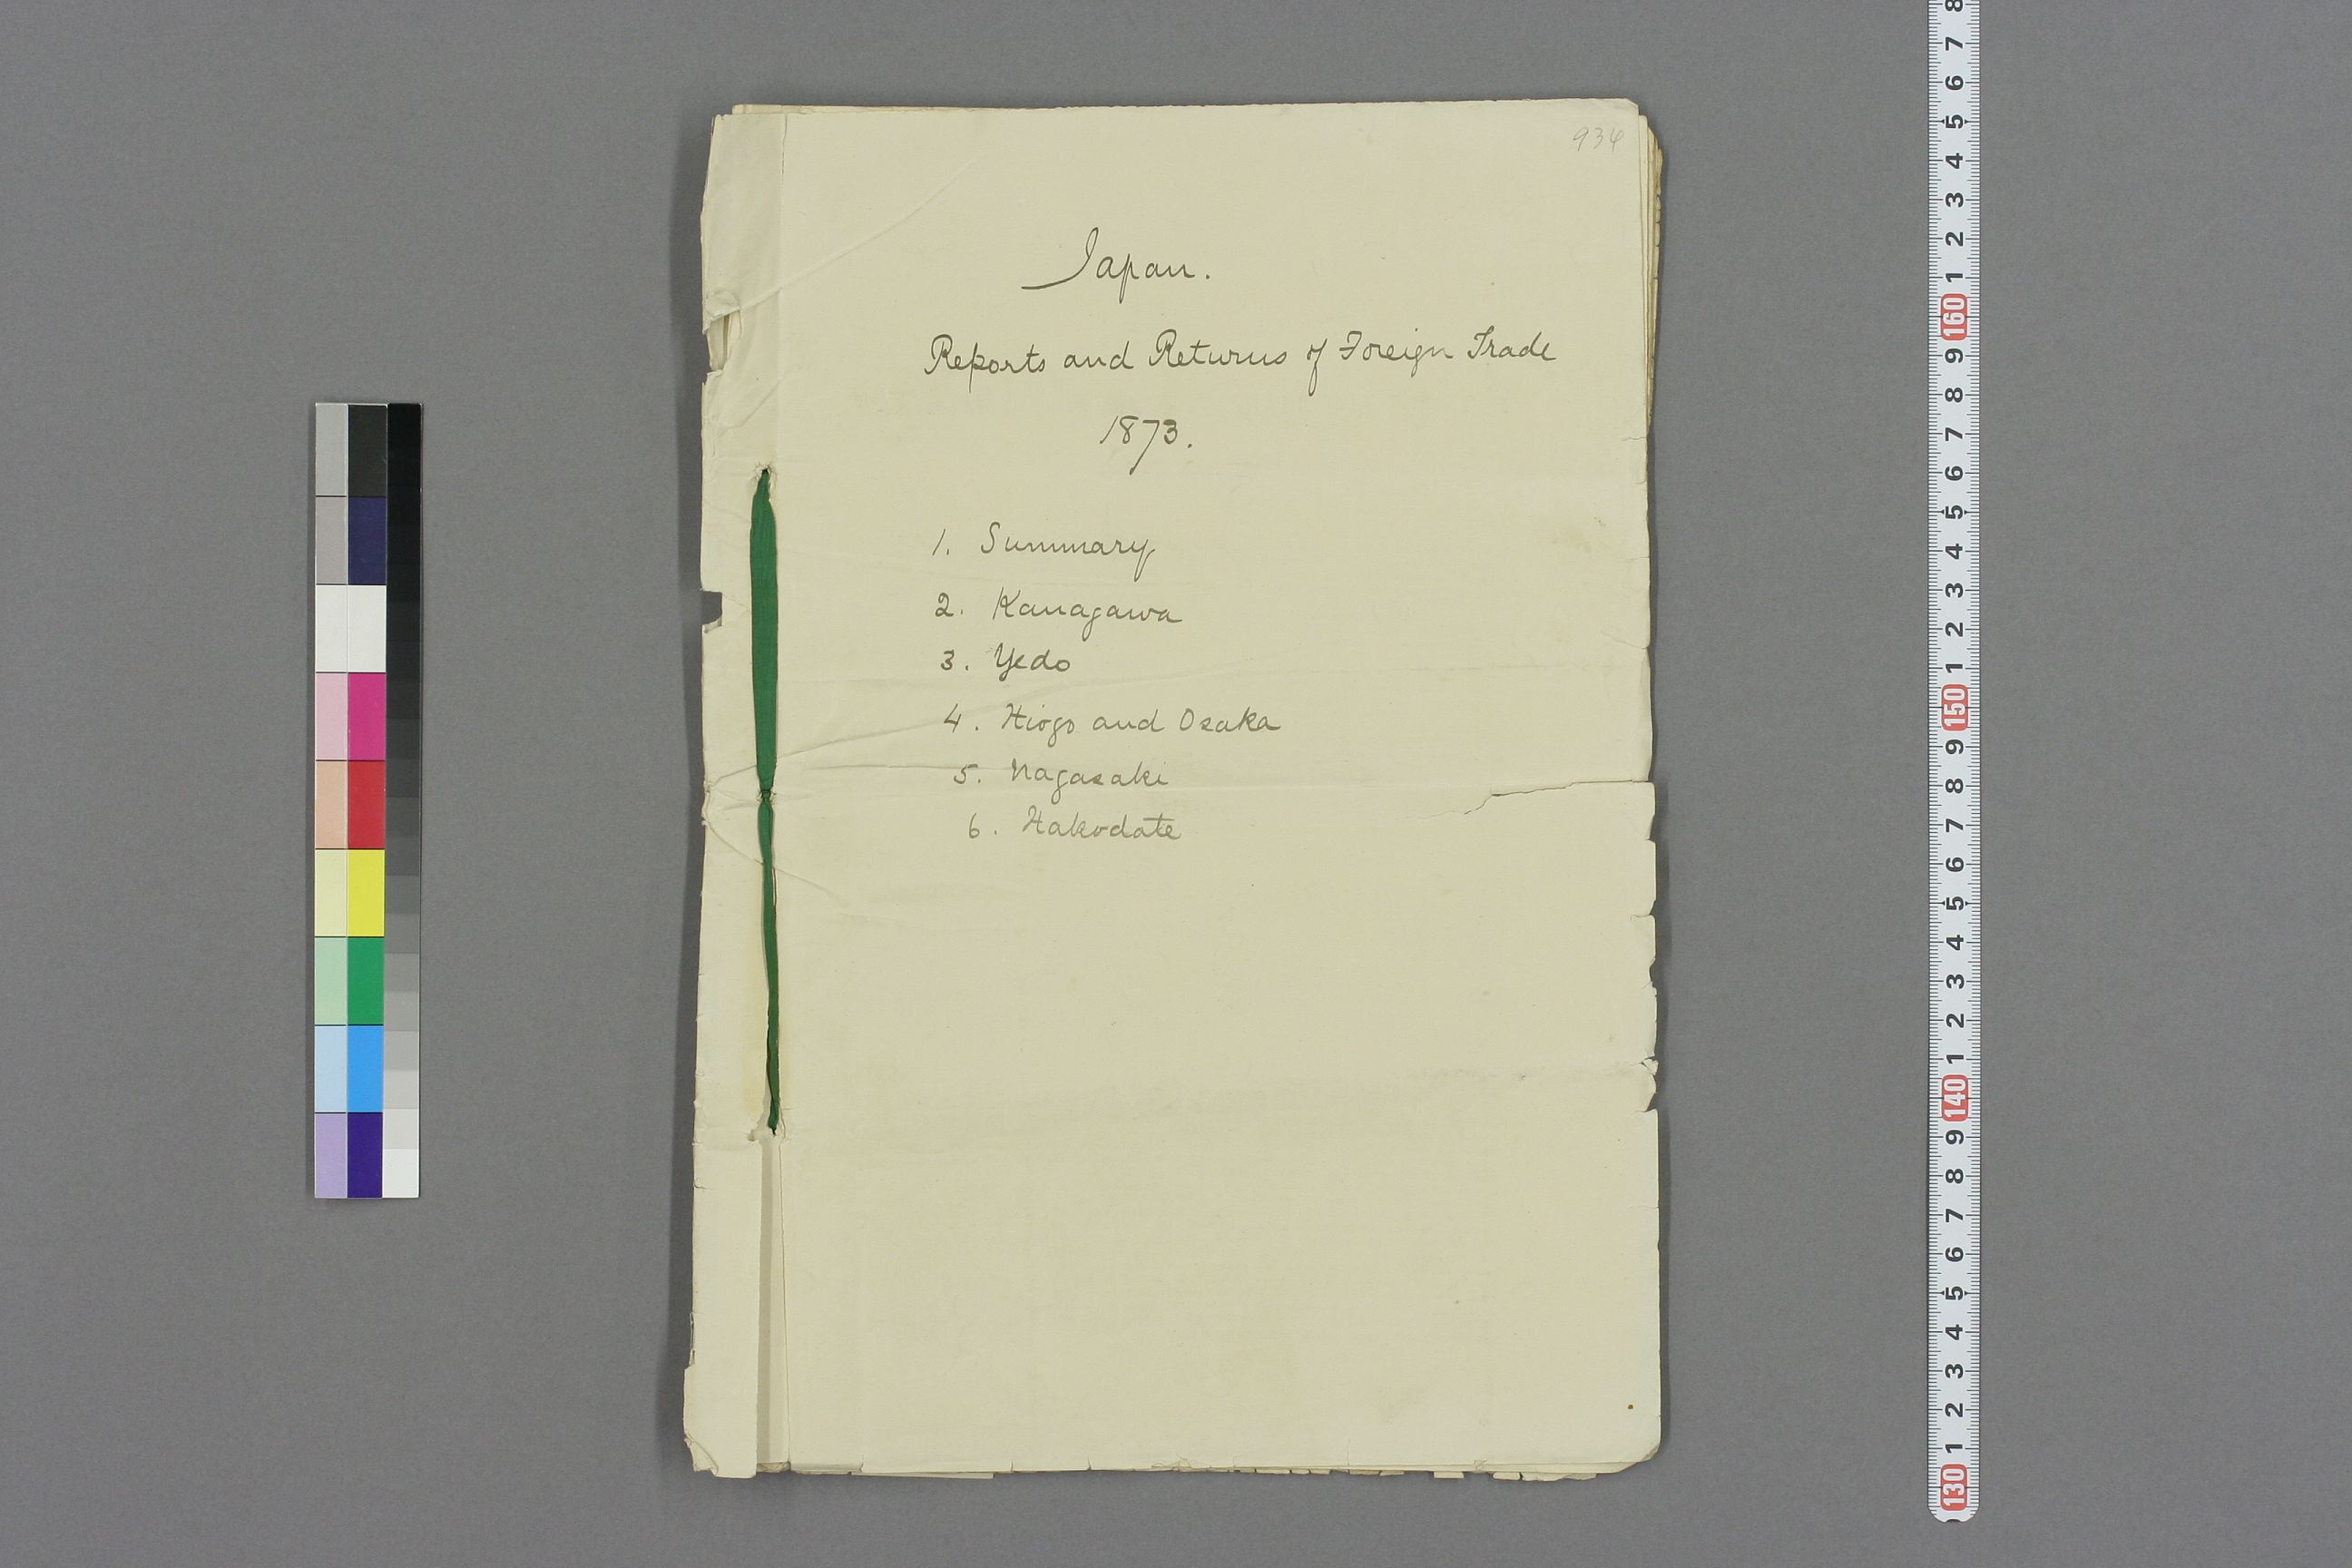 934
Japan.
Reports and Returns of Foreign Trade
1873.
1. Summary
2. Kanagawa
3. Yedo
4. Hiogo and Osaka
5. Nagasaki
6. Hakodate
8
7
6
5
4
3
2
1
160
9
8
7
6
5
4
3
2
1
150
9
8
7
6
5
4
3
2
1
140
9
8
7
6
5
4
3
2
1
130